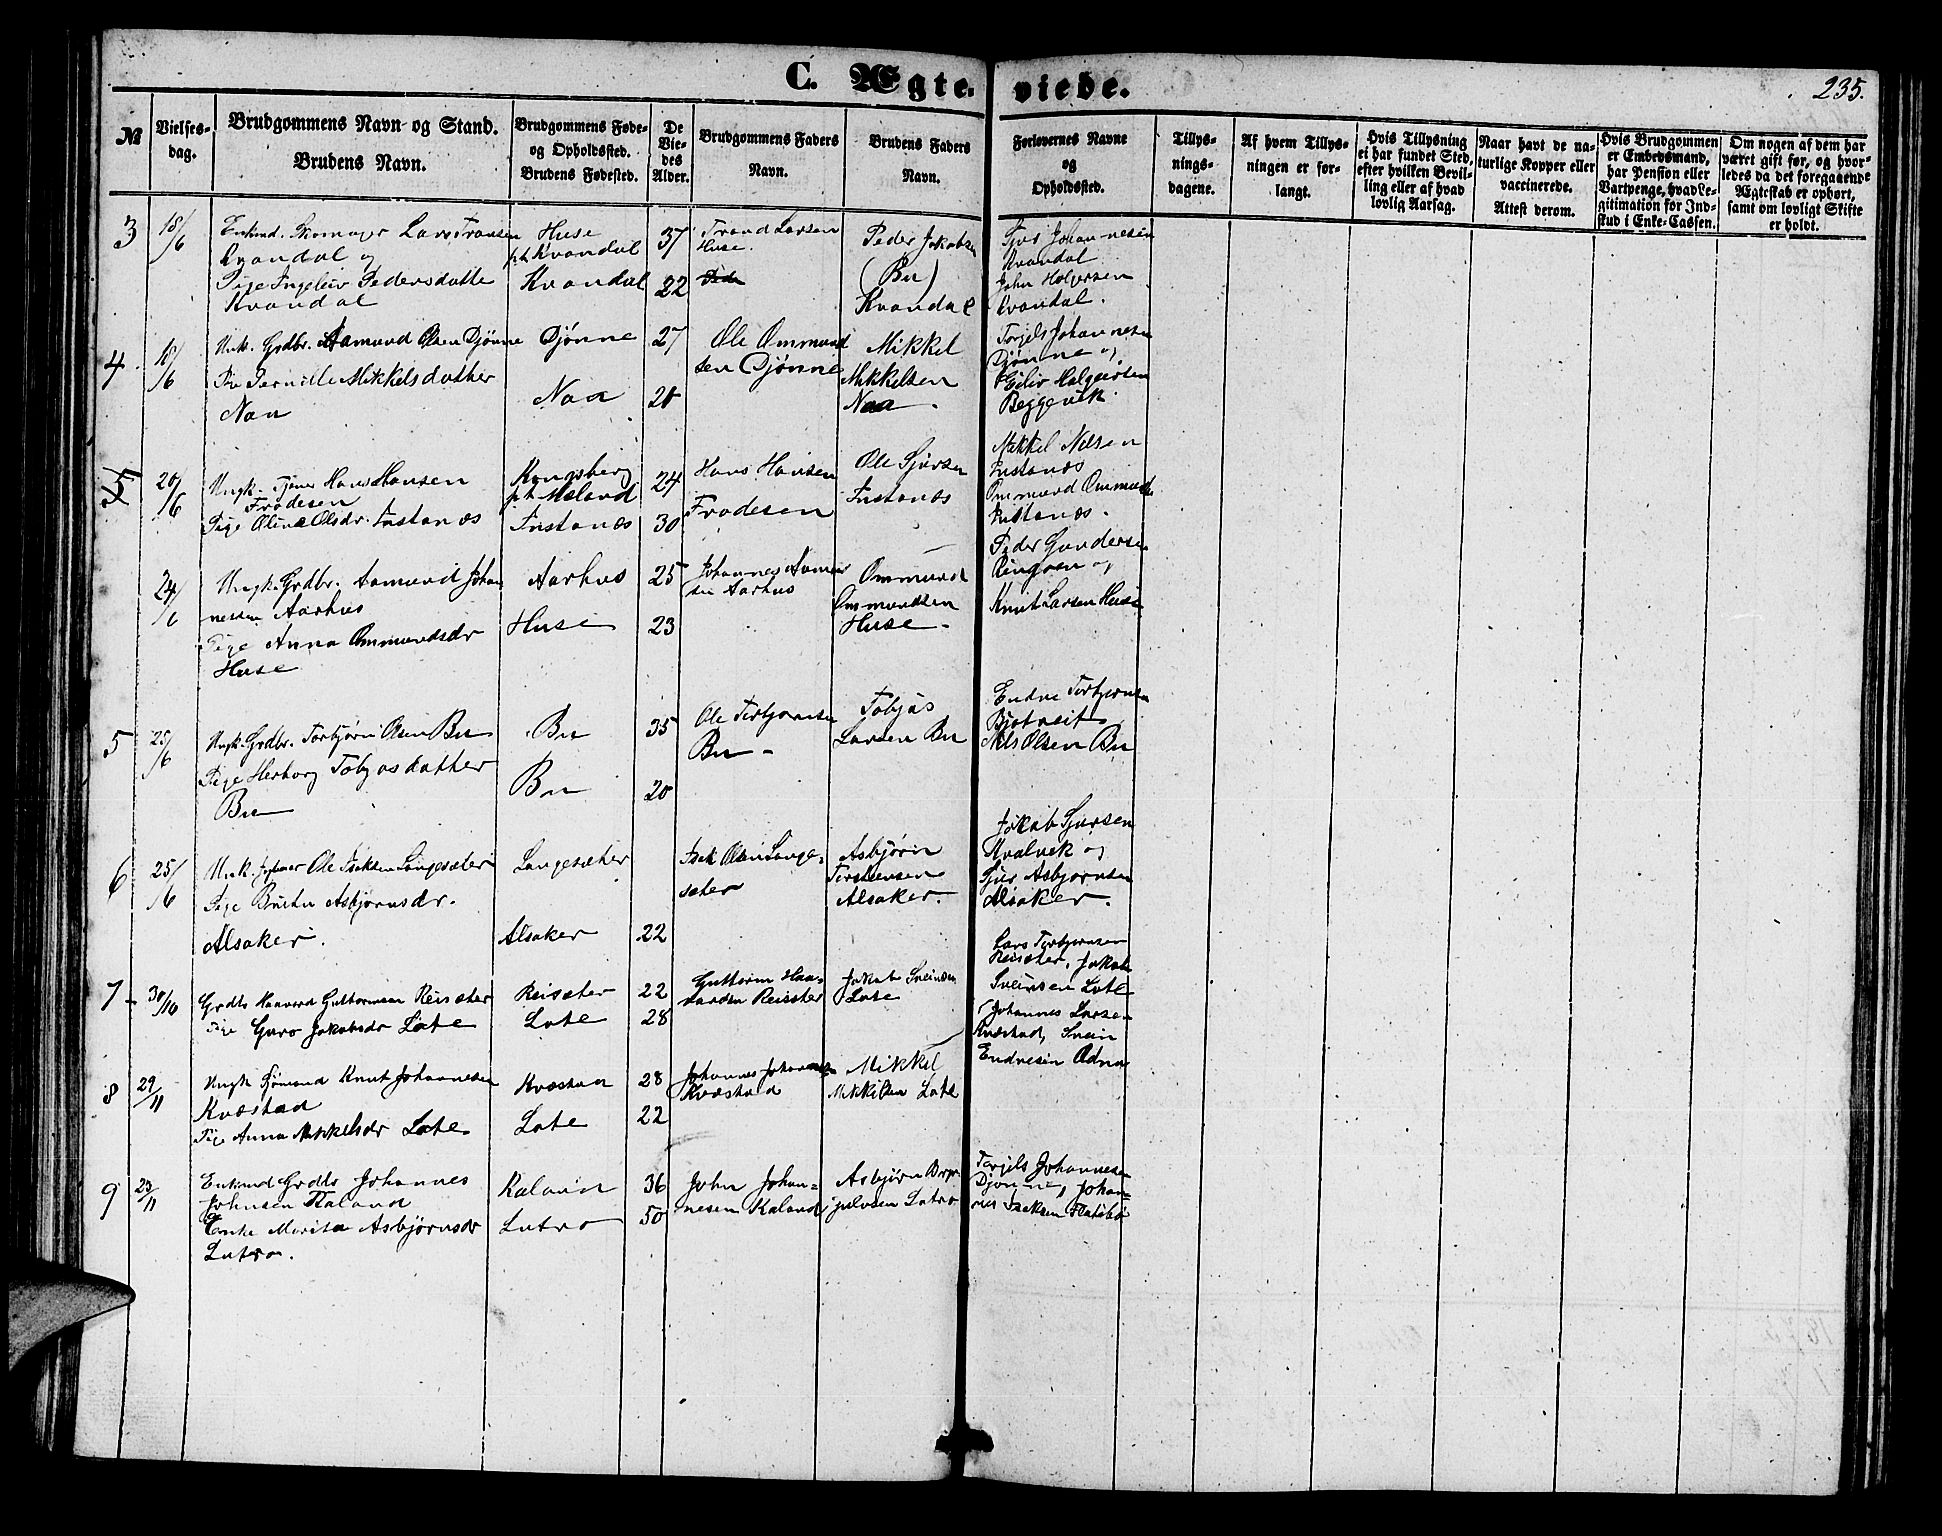 C. Ægte-viede.
235.
№
Vielses-dag.
Brudgommens Navn og Stand.
Brudens Navn.
Brudgommens Føde-
og Opholdssted.
Brudens Fødested.
De
Vie-
des
Alder.
Brudgommens Faders
Navn.
Brudens Faders
Navn.
Forlovernes Navne
og
Opholdssted.
Tillys-
nings-
dagene.
Af hvem Tillys-
ningen er for-
langt.
Hvis Tillysning
ei har fundet Sted,
efter hvilken Bevil-
ling eller af hvad
lovlig Aarsag.
Naar havt de na-
turlige Kopper eller
vaccinerede.
Attest derom.
Hvis Brudgommen
er Embedsmand,
har Pension eller
Vartpenge, hvad Le-
gitimation for Ind-
skud i Enke-Cassen.
Om nogen af dem har
været gift før, og hvor-
ledes da det foregaaende
Ægteskab er ophørt,
samt om lovligt Skifte
er holdt.
3 18/6
Enkmd. Skomager Lars Tronsen
Kvandal og
Pige Ingeleiv Pedersdatter
Kvandal
Huse
p.t. Kvandal
Kvandal
37
22
Trond Larsen
Huse.
Peder Jakobsen
(Bu)
Kvandal
Sjur Johannesen
Kvandal
John Halvorsen
Kvandal.
4 18/6
Unk. Grdbr. Aamund Olsen Djønne
Pi Pernille Mikkelsdatter
Naa
Djønne
Naa
27
20
Ole Ommund
sen Djønne
Mikkel
Mikkelsen
Naa.
Torjels Johannesen
Djønne og
Eiliv Halgeirsen
Beggevik.
5 20/6
Ungk. Tjener Hans Hansen
Frodesen
Pige Oline Olsdr. Instanæs
Kongsberg
p.t. Mæland
Instanæs
24
30
Hans Hansen
Frodesen
Ole Sjursen
Instanæs
Mikkel Nilsen
Instanæs
Ommund Ommunds
Instanæs.
24/6
Ungk. Grdbr. Aamund Johan
nesen Aarhus
Pige Anna Ommundsdr
Huse
Aarhus
Huse
25
23
Johannes Aamun
sen Aarhus
Ommund
Ommundsen
Huse.
Peder Gundersen
Ringøen og
Knut Larsen Huse
5 25/6
Ungk. Grdbr. Torbjørn Olsen Bu
Pige Herborg Tobjasdatter
Bu
Bu
Bu
35
20
Ole Torbjørnsen
Bu
Tobjas
Larsen Bu
Endre Torbjørnsen
Bjotveit
Nils Olsen Bu
6 25/6
Unk. Ole Isaksen Langesæter
Pige Asbjørnsdr.
Alsaker.
Langesæter
Alsaker
22
Isak Olsen Lange-
sæter
Asbjørn
Torsteinsen
Alsaker.
Jakob Sjursen
Kvalvik og
Sjur Asbjørnsen
Alsaker.
7 30/10
Grdbr Haavard Guttormsen Reisæter
Pige Guro Jakobsdr Lote
Reisæter
Lote
22
28
Guttorm Haa-
vardsen Reisæter
Jakob Sveinsen
Lote
Lars Torbjørnsen
Reisæter, Jakob
Sveinsen Lote
8 29/11
Ungk Knut Johannesen
Kvæstad
Pige Anna Mikkelsdr Lote
Kvæstad
Lote
28
22
Johannes Johannesen
Kvæstad
Mikkel
Mikkelsen Lote
Johannes Larsen
Kvæstad, Svein
Endresen Odna
9 29/11
Enkmd Grdbr Johannes
Johnsen Raland
Enke Marita Asbjørnsdr
Lutro.
Lutro
36
50
John Johan-
nesen
Asbjørn
Lutro
Torjels Johannesen
Djønne, Johan-
nes Isaksen